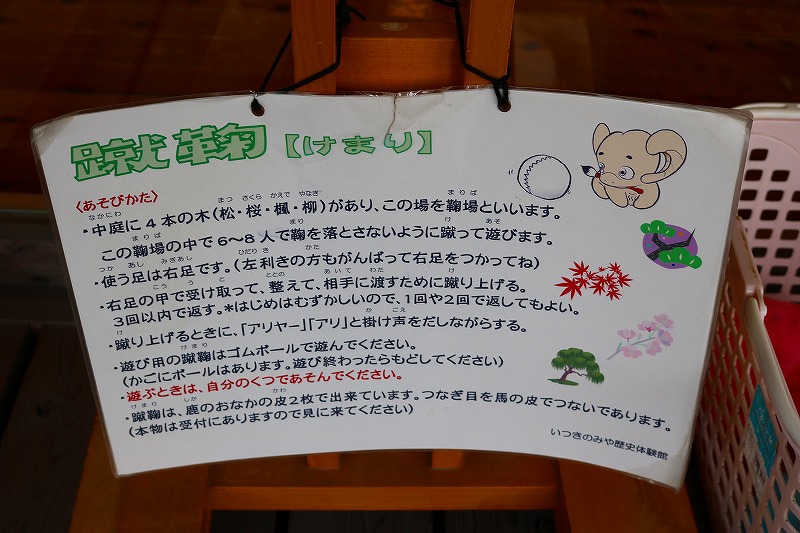 蹴鞠【けまり】
〈あそびかた〉
なかにわ まつ さくら かえで やなぎ まりば
・中庭に4本の木(松・桜・楓・柳)があり、この場を鞠場といいます。
まりば まり け あそ
この鞠場の中で6～8人で鞠を落とさないように蹴って遊びます。
つか あし みぎあし ひだりき かた
・使う足は右足です。(左利きの方もがんばって右足をつかってね)
こう うと ととの あいて わた け
・右足の甲で受け取って、整えて、相手に渡すために蹴り上げる。
3回以内で返す。*はじめはむずかしいので、1回や2回で返してもよい。
け か ごえ
・蹴り上げるときに、「アリヤー」「アリ」と掛け声をだしながらする。
けまり
・遊び用の蹴鞠はゴムボールで遊んでください。
(かごにボールはあります。遊び終わったらもどしてください)
・遊ぶときは、自分のくつであそんでください。
けまり しか かわ
・蹴鞠は、鹿のおなかの皮2枚で出来ています。つなぎ目を馬の皮でつないであります。
(本物は受付にありますので見に来てください)
いつきのみや歴史体験館